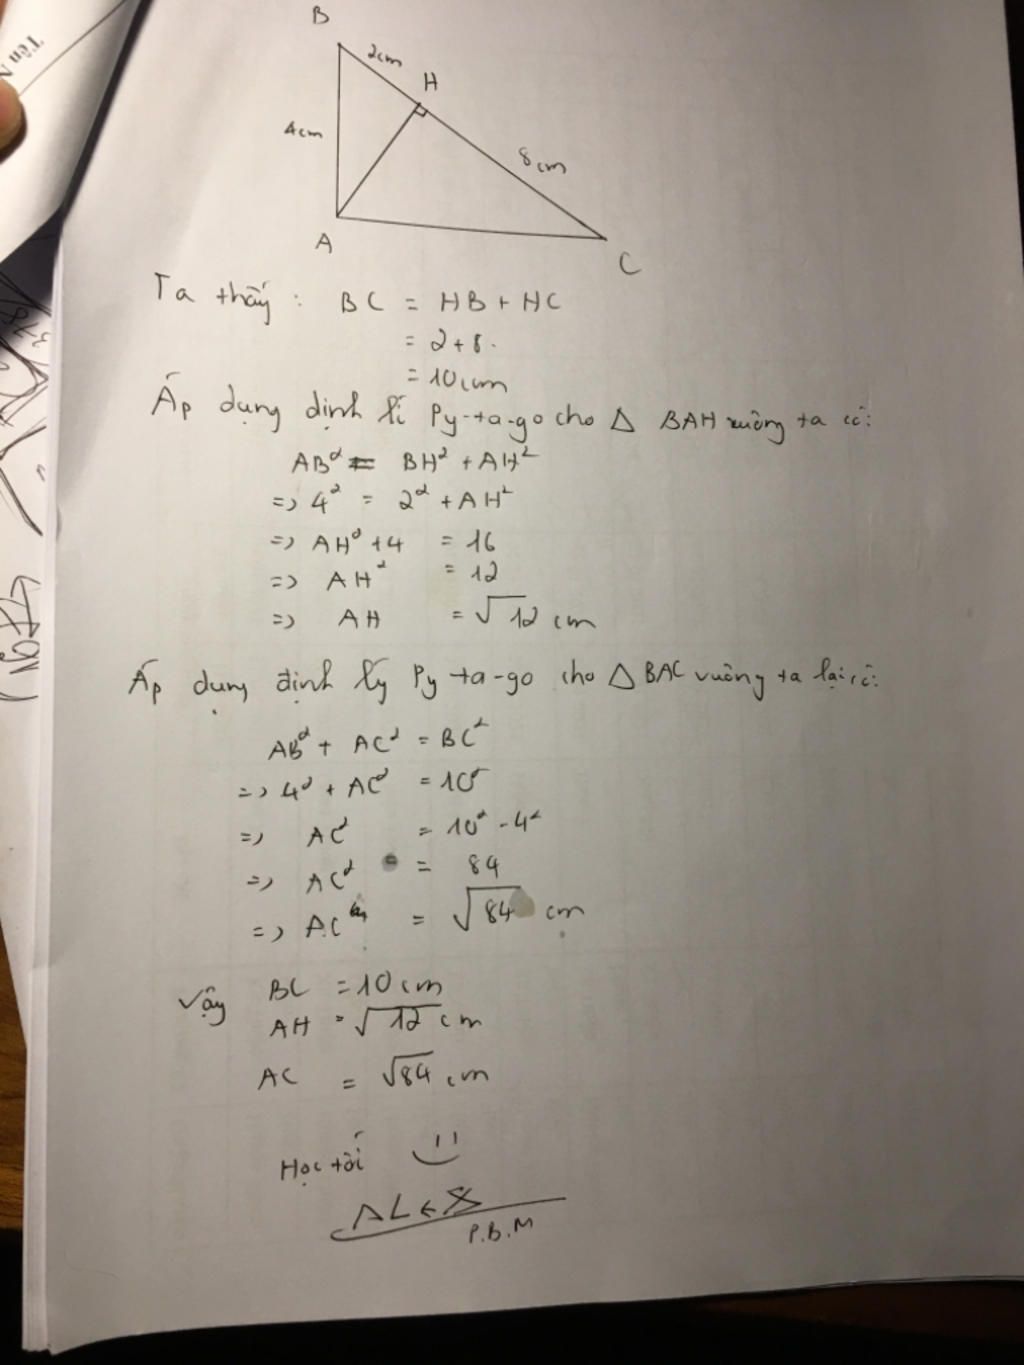 Tên
B
2cm
H
4cm
8cm
A
C
Ta thấy : BC = HB + HC
= 2 + 8.
= 10cm
Áp dụng định lí Py-ta-go cho Δ BAH vuông ta có:
AB² = BH² + AH²
=> 4² = 2² + AH²
=> AH² + 4 = 16
=> AH² = 12
=> AH = √12 cm
Áp dụng định lý Py-ta-go cho Δ BAC vuông ta lại có:
AB² + AC² = BC²
=> 4² + AC² = 10²
=> AC² = 10² - 4²
=> AC² = 84
=> AC = √84 cm
Vậy BC = 10 cm
AH = √12 cm
AC = √84 cm
Học tốt
ALEX
P.B.M